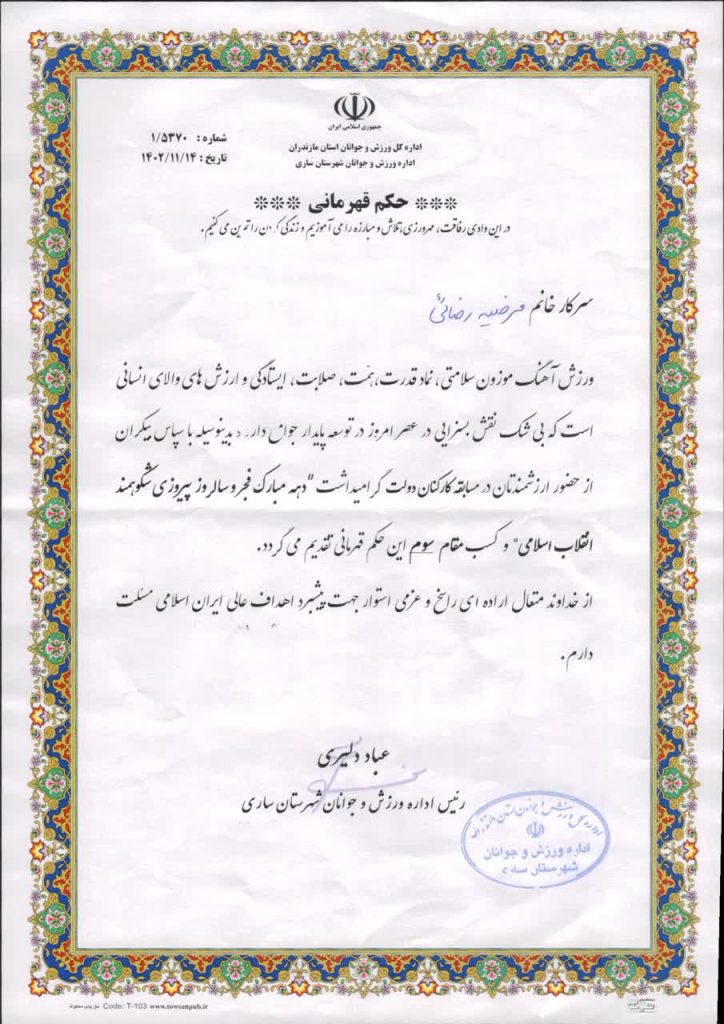 جمهوری اسلامی ایران
اداره کل ورزش و جوانان استان مازندران
اداره ورزش و جوانان شهرستان ساری
شماره : ۱/۵۳۷۰
تاریخ : ۱۴۰۲/۱۱/۱۴
*** حکم قهرمانی ***
در این وادی رفاقت، مهرورزی، تلاش و مبارزه را می آموزیم و زندگی کردن را تمرین می کنیم.
سرکار خانم مرضیه رضائی
ورزش آهنگ موزون سلامتی، نماد قدرت، همت، صلابت، ایستادگی و ارزش های والای انسانی
است که بی شک نقش بسزایی در عصر امروز در توسعه پایدار جوامع دارد. بدینوسیله با سپاس بیکران
از حضور ارزشمندتان در مسابقه کارکنان دولت گرامیداشت "دهه مبارک فجر و سالروز پیروزی شکوهمند
انقلاب اسلامی" و کسب مقام سوم این حکم قهرمانی تقدیم می گردد.
از خداوند متعال اراده ای راسخ و عزمی استوار جهت پیشبرد اهداف عالی ایران اسلامی مسئلت
دارم.
عباد دلیری
رئیس اداره ورزش و جوانان شهرستان ساری
اداره کل ورزش و جوانان استان مازندران
اداره ورزش و جوانان
شهرستان ساری
Code: T-103 www.towsanpub.ir